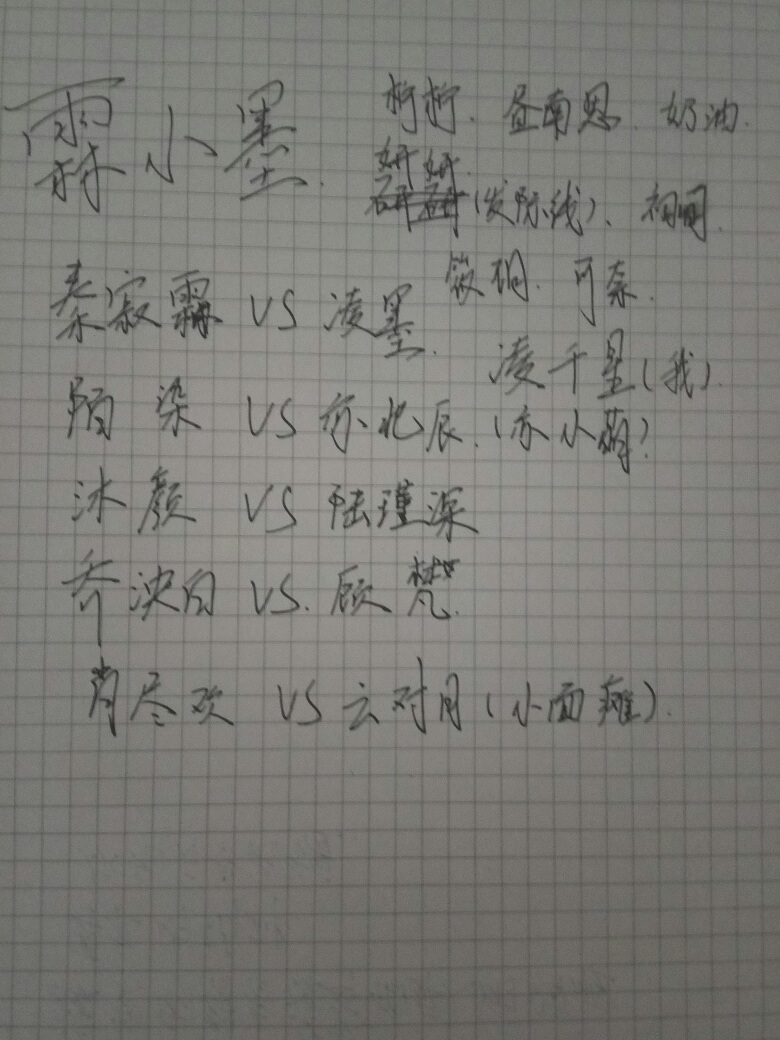 霖小墨.
柠柠. 昼南恩. 奶油.
妍妍
(发际线)、初明.
筱桐. 可奈.
秦寂霖 VS 凌墨.
凌千星(我).
陌染 VS 苏北辰.(亦小萌)
沐颜 VS 陆瑾深
乔泱向 VS. 顾梵.
肖尽欢 VS 云对月(小面瘫).